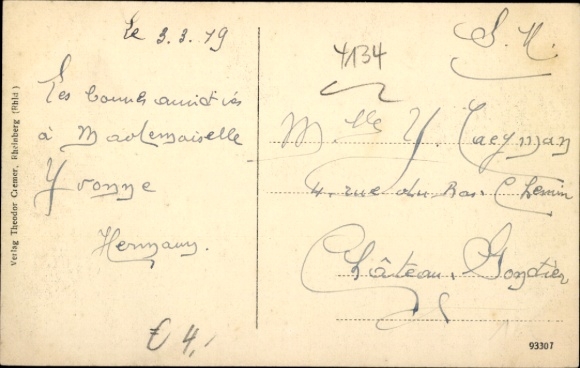 Le 3.3.19
Les bonnes amitiés
à Mademoiselle
Yvonne
Hermann.
€ 4,-
4134
S. M.
M.lle Y. Taeyman
4. rue du Bas. Chemin
Château. Gontier
93307
Verlag Theodor Cremer, Rheinberg (Rhld)